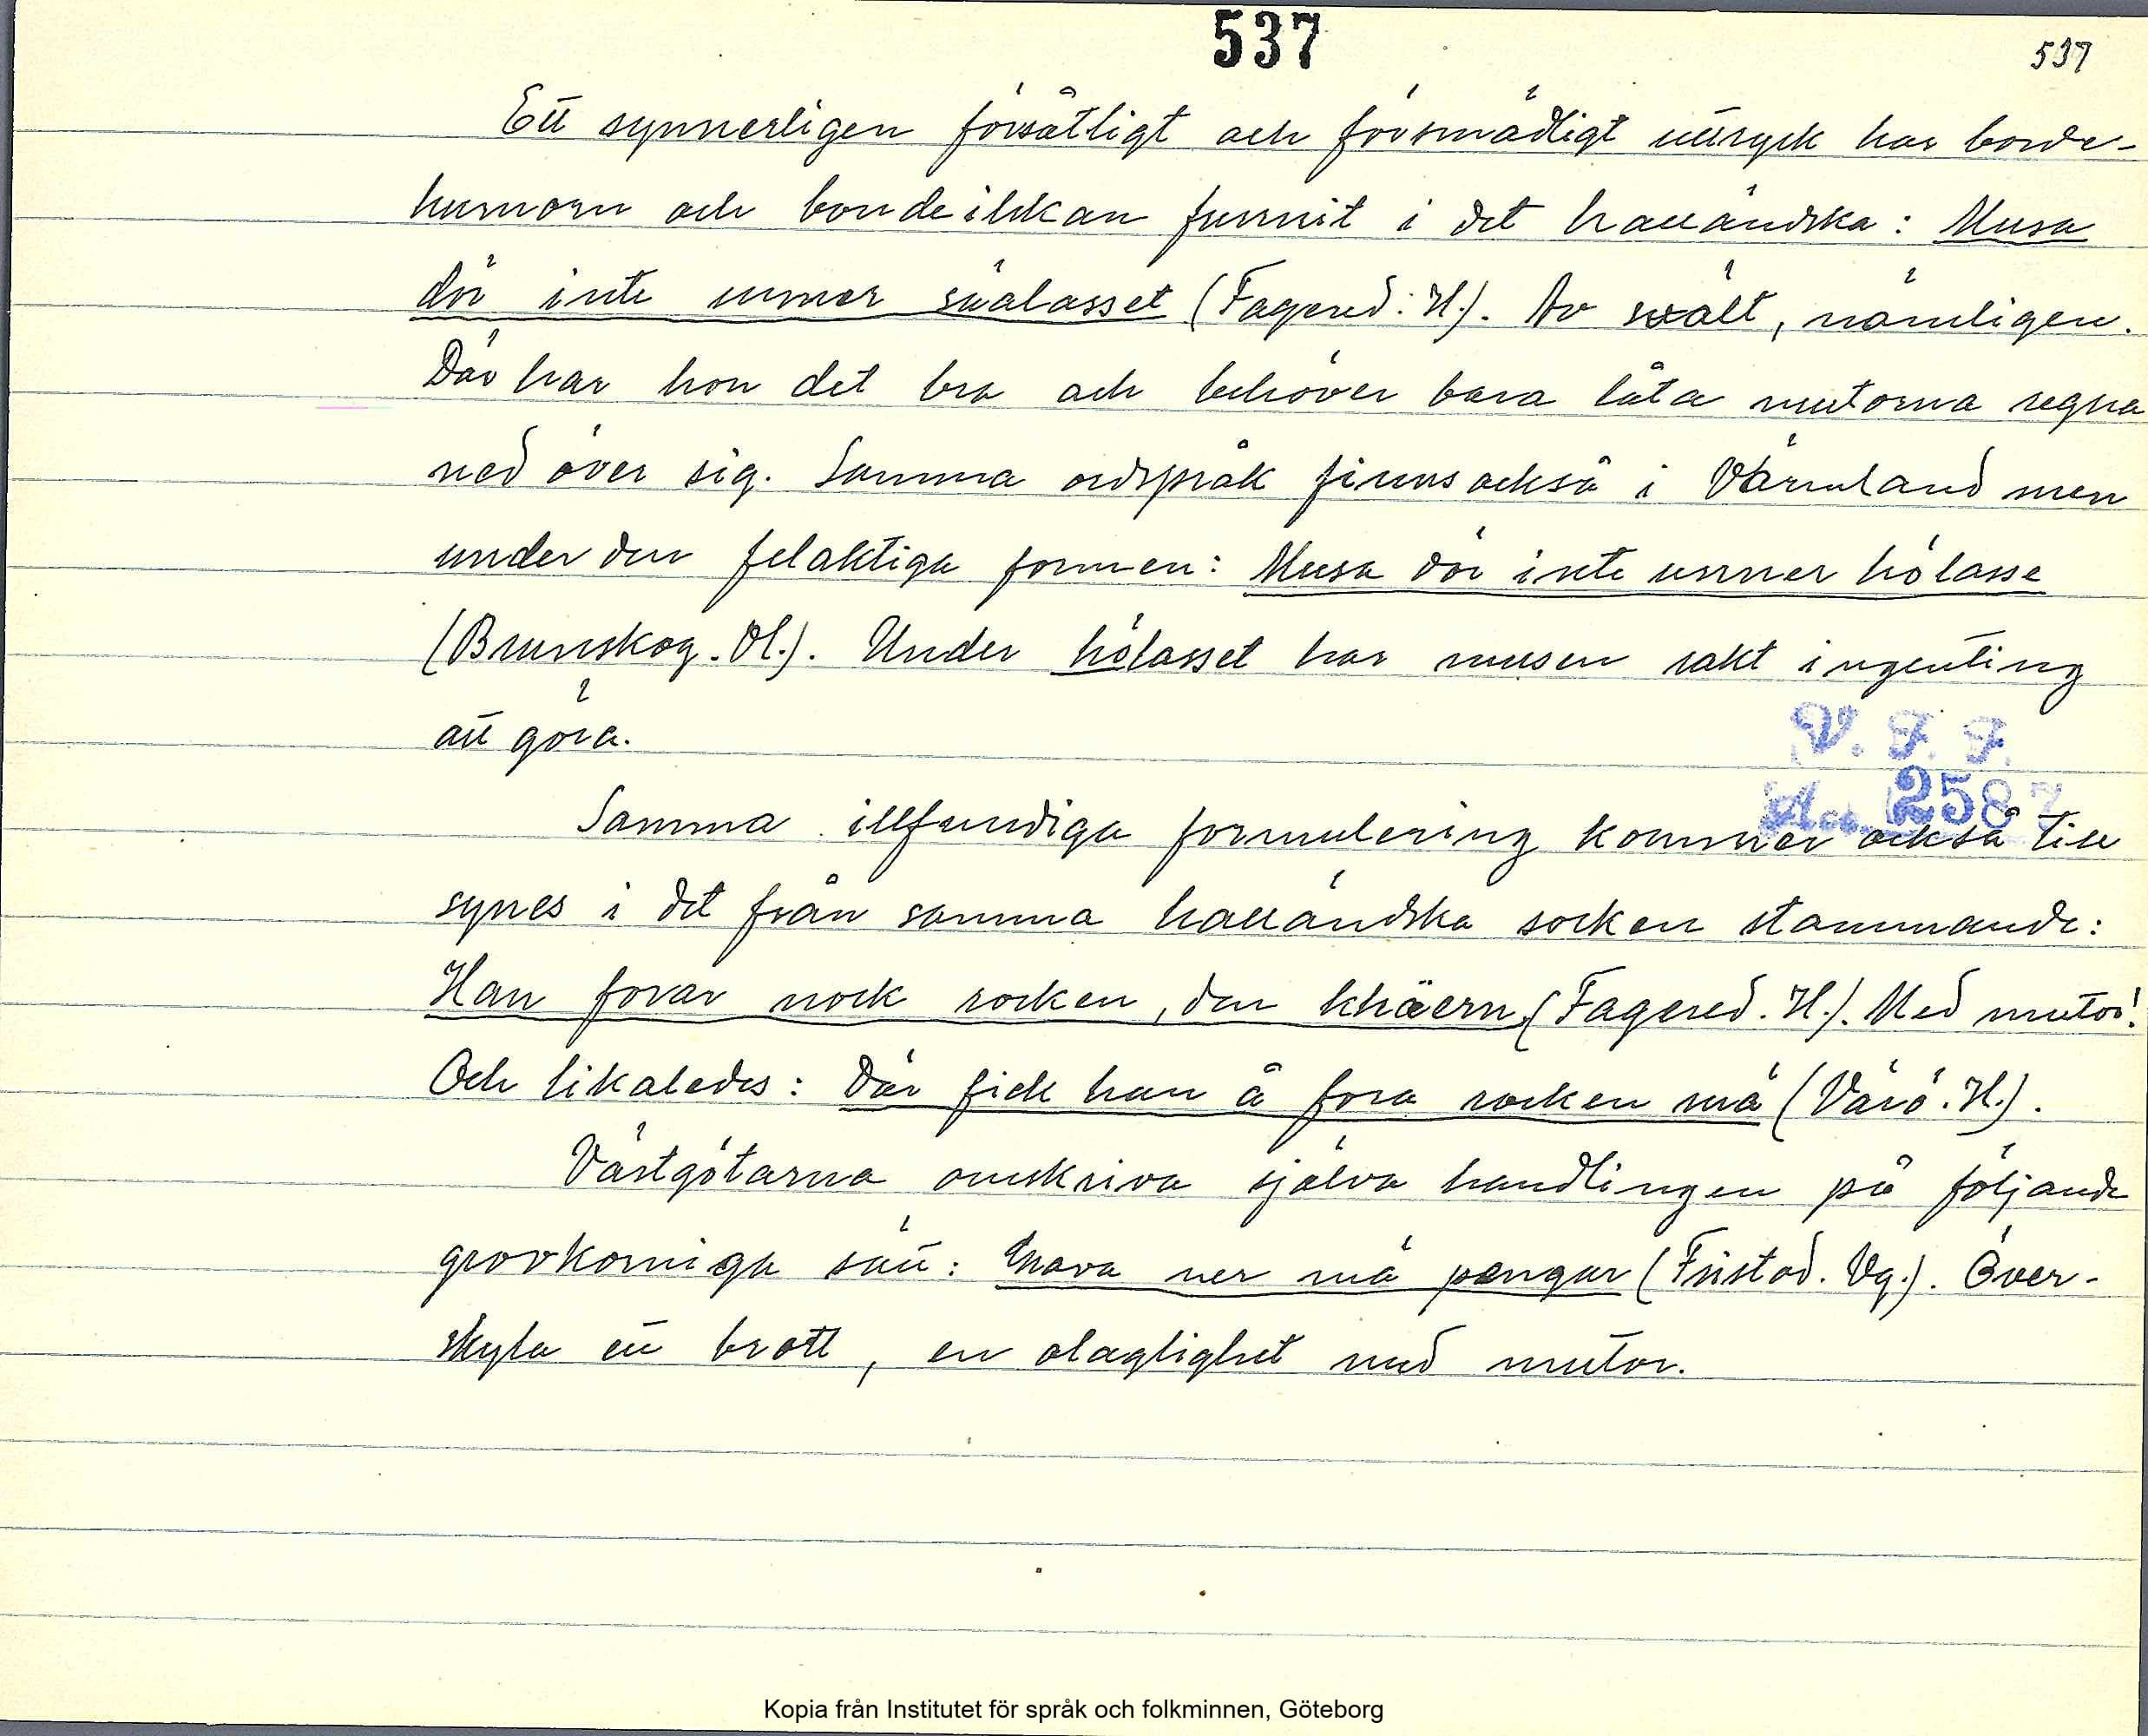 537
537
Ett synnerligen försåtligt och försmädligt uttryck har bonde-
humorn och bondeilskan funnit i det halländska: Musa
dör inte unner säalasset (Fagered. H.). Av svält, nämligen.
Där har hon det bra och behöver bara låta mutorna regna
ned över sig. Samma ordspråk finns också i Värmland men
under den felaktiga formen: Musa dör inte unner hölasse
(Brunskog. Vl.). Under hölasset har musen rakt ingenting
att göra.
V. F. F.
Acc. 2587
Samma illfundiga formulering kommer också till
synes i det från samma halländska socken stammande:
Han forar nock rocken, den khäern (Fagered. H.). Med mutor!
Och likaledes: Där fick han å fora rocken mä (Värö. H.).
Västgötarna omskriva själva handlingen på följande
grovkorniga sätt: Grava ner mä pengar (Fristad. Vg.). Över-
skyla ett brott, en olaglighet med mutor.
Kopia från Institutet för språk och folkminnen, Göteborg